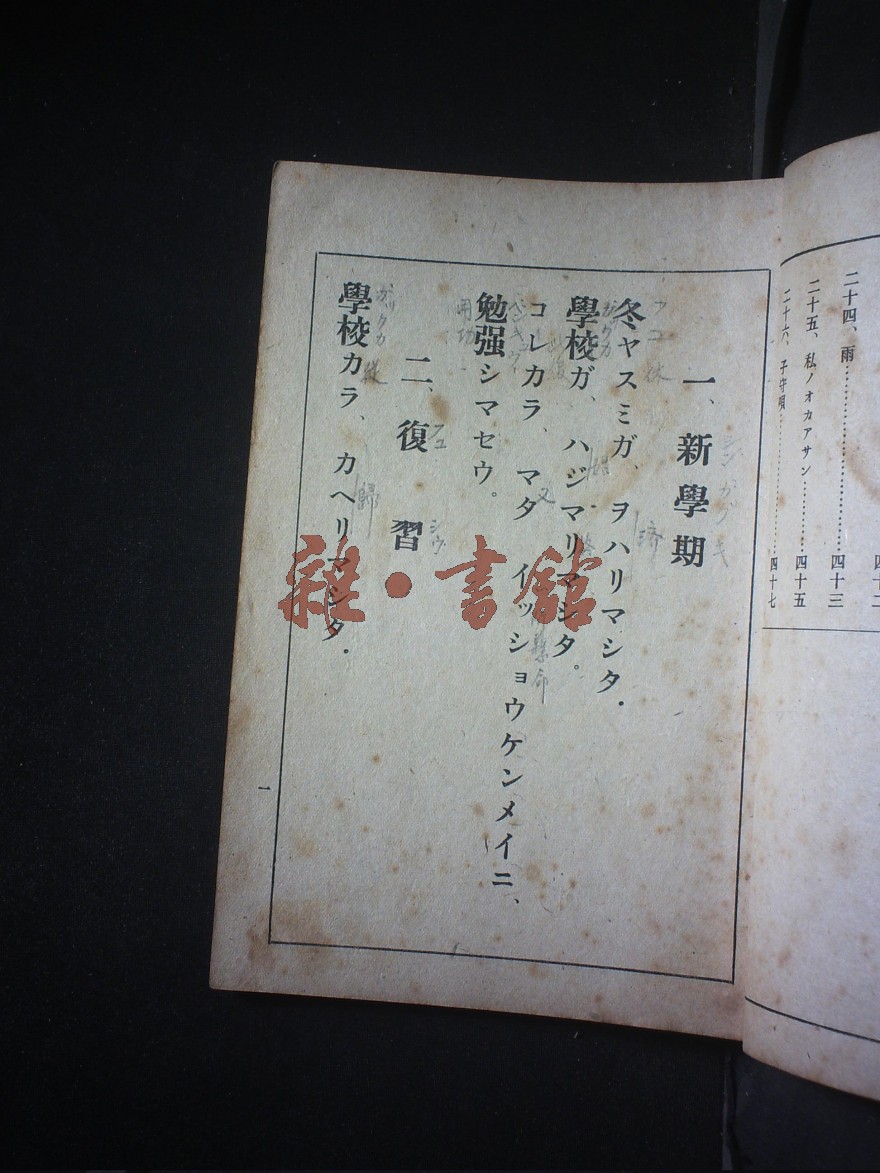 二十四、雨
四十二
二十五、私ノオカアサン
四十三
四十五
二十六、子守唄
四十七
一、新學期
冬ヤスミガ、ヲハリマシタ．
學校ガ、ハジマリマシタ。
コレカラ、マタ イッショウケンメイニ、
勉强シマセウ。
二、復習
學校カラ、カヘリマシタ．
一
済
又
帰
用功
雜·書館